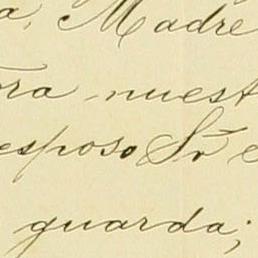 a, Madre
ora nuest
esposo Sr e
guarda;